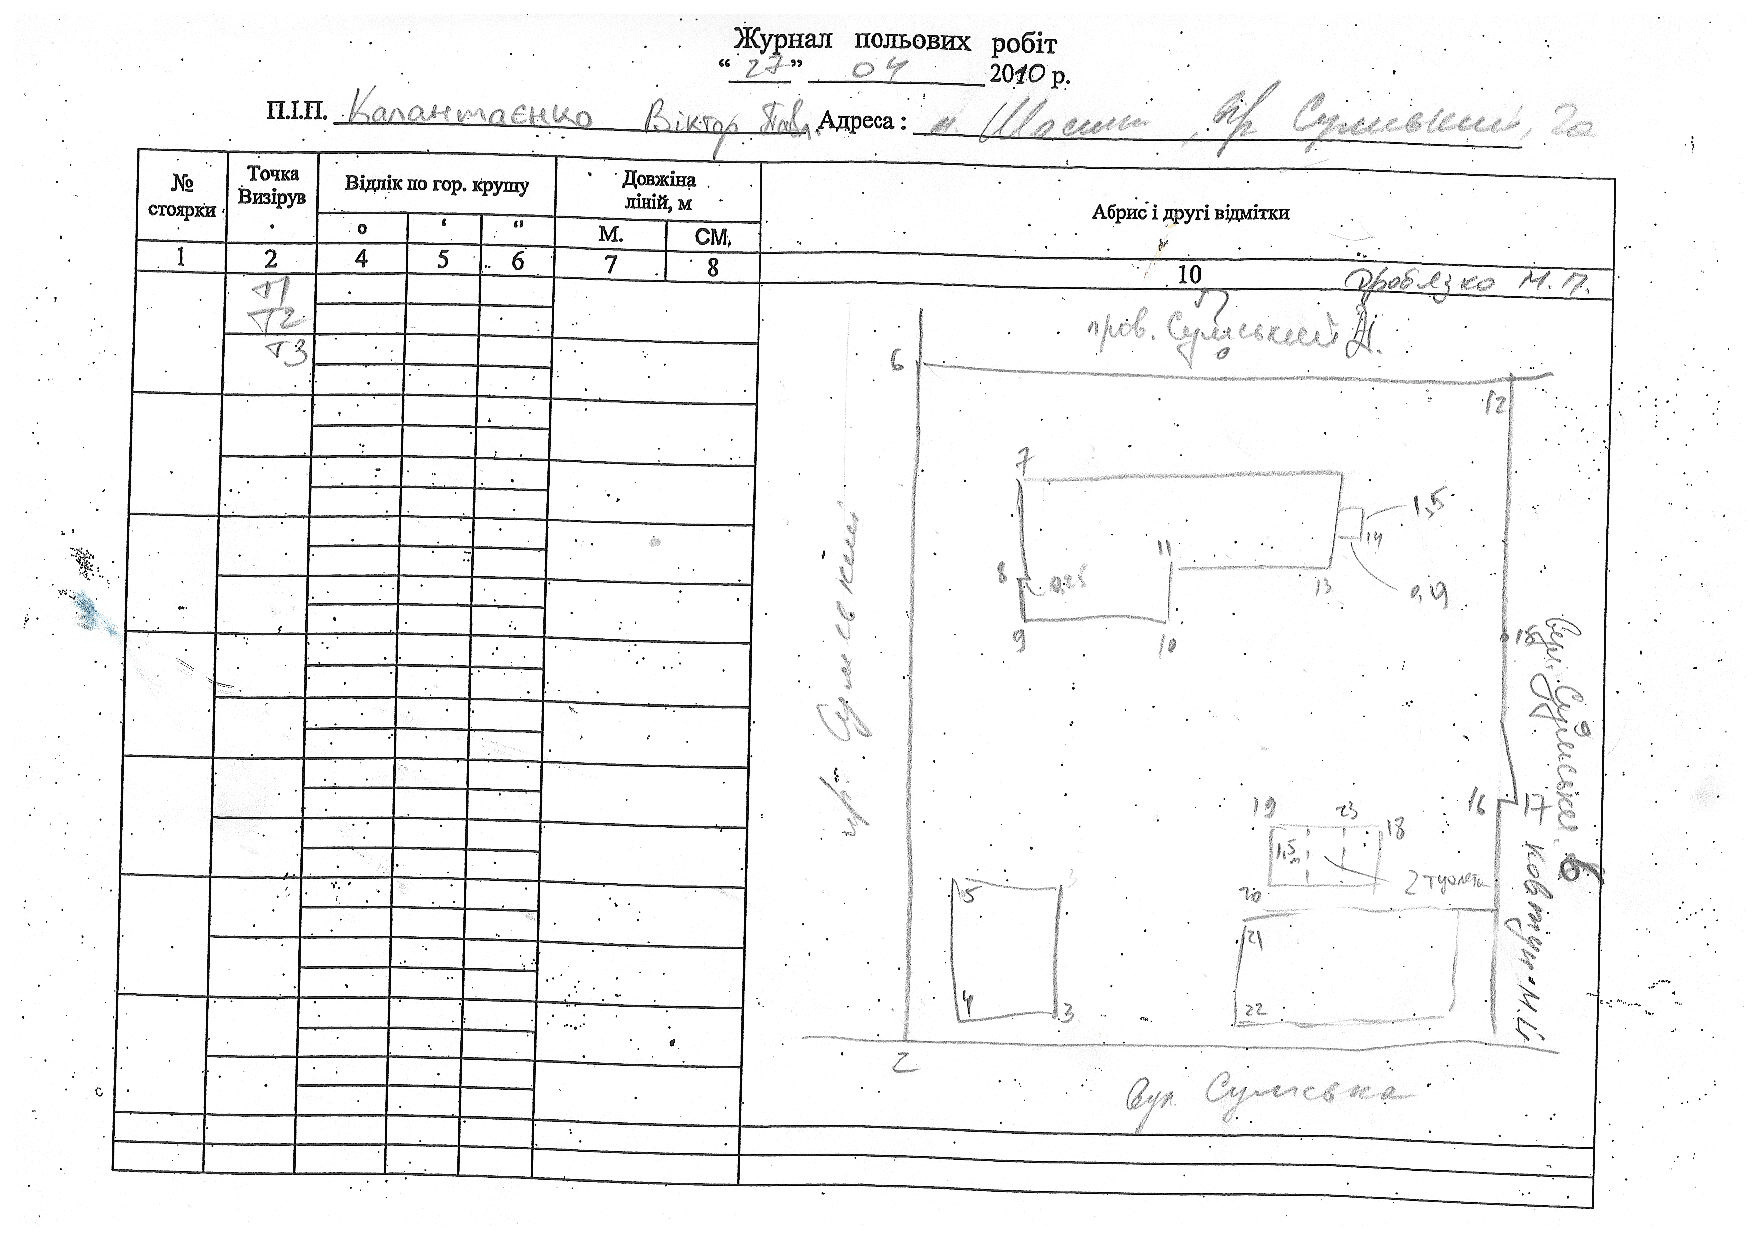 Журнал польових робіт
“ 27 ” 04 2010 р.
П.І.П. Калантаєнко Віктор Павл. Адреса : м. , пр Сумський, 2а
№ стоярки
Точка Визірув
Відлік по гор. крущу
Довжіна ліній, м
Абрис і другі відмітки
о ‘ “ М. СМ.
1 2 4 5 6 7 8 10
Дроб'язко М. П.
Т1
Т2
Т3
пров. Сумський
6
12
7
1,5
14
11
8
0,25
13
0,19
9
10
15
пр. Сумський
вул. Сумська 6
Ковтун М.И
16
17
19
23
18
1,5
2 туалети
20
5
21
4
3
22
2
Вул Сумська